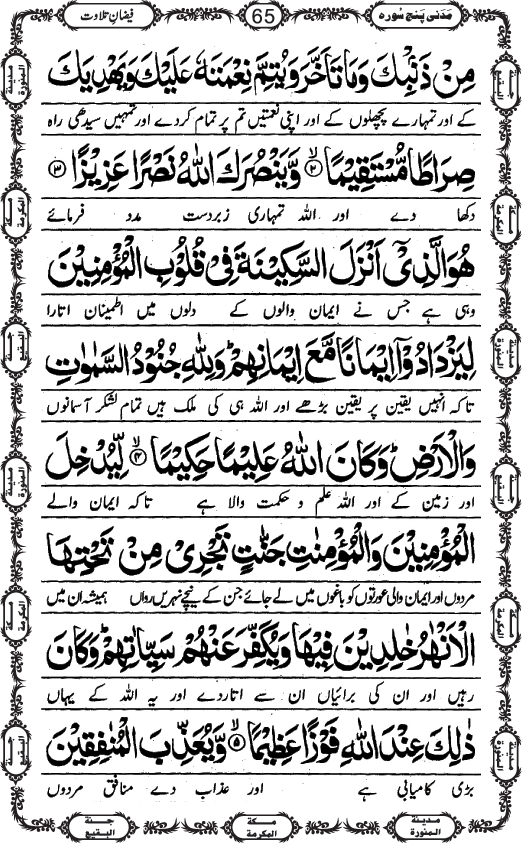 مَدَنی پنج سُورہ
65
فیضانِ تلاوت
مِنْ ذَنْۢبِكَ وَمَا تَاَخَّرَ وَيُتِمَّ نِعْمَتَهٗ عَلَيْكَ وَيَهْدِيَكَ
کے اور تمہارے پچھلوں کے اور اپنی نعمتیں تم پر تمام کردے اور تمہیں سیدھی راہ
صِرَاطًا مُّسْتَقِيْمًا ۙ﴿۲﴾ وَّيَنْصُرَكَ اللّٰهُ نَصْرًا عَزِيْزًا ﴿۳﴾
دکھا دے اور اللہ تمہاری زبردست مدد فرمائے
هُوَ الَّذِيْۤ اَنْزَلَ السَّكِيْنَةَ فِيْ قُلُوْبِ الْمُؤْمِنِيْنَ
وہی ہے جس نے ایمان والوں کے دلوں میں اطمینان اتارا
لِيَزْدَادُوْۤا اِيْمَانًا مَّعَ اِيْمَانِهِمْ ؕ وَلِلّٰهِ جُنُوْدُ السَّمٰوٰتِ
تاکہ انہیں یقین پر یقین بڑھے اور اللہ ہی کی ملک ہیں تمام لشکر آسمانوں
وَالْاَرْضِ ؕ وَكَانَ اللّٰهُ عَلِيْمًا حَكِيْمًا ۙ﴿۴﴾ لِّيُدْخِلَ
اور زمین کے اور اللہ علم و حکمت والا ہے تاکہ ایمان والے
الْمُؤْمِنِيْنَ وَالْمُؤْمِنٰتِ جَنّٰتٍ تَجْرِيْ مِنْ تَحْتِهَا
مردوں اور ایمان والی عورتوں کو باغوں میں لے جائے جن کے نیچے نہریں رواں ہمیشہ ان میں
الْاَنْهٰرُ خٰلِدِيْنَ فِيْهَا وَيُكَفِّرَ عَنْهُمْ سَيِّاٰتِهِمْ ؕ وَكَانَ
رہیں اور ان کی برائیاں ان سے اتاردے اور یہ اللہ کے یہاں
ذٰلِكَ عِنْدَ اللّٰهِ فَوْزًا عَظِيْمًا ۙ﴿۵﴾ وَّيُعَذِّبَ الْمُنٰفِقِيْنَ
بڑی کامیابی ہے اور عذاب دے منافق مردوں
مدينة المنورة
مكة المكرمة
جنة البقيع
مدينة المنورة
مكة المكرمة
جنة البقيع
جنة البقيع
مكة المكرمة
مدينة المنورة
جنة البقيع
مكة المكرمة
مدينة المنورة
جنة البقيع
مكة المكرمة
مدينة المنورة